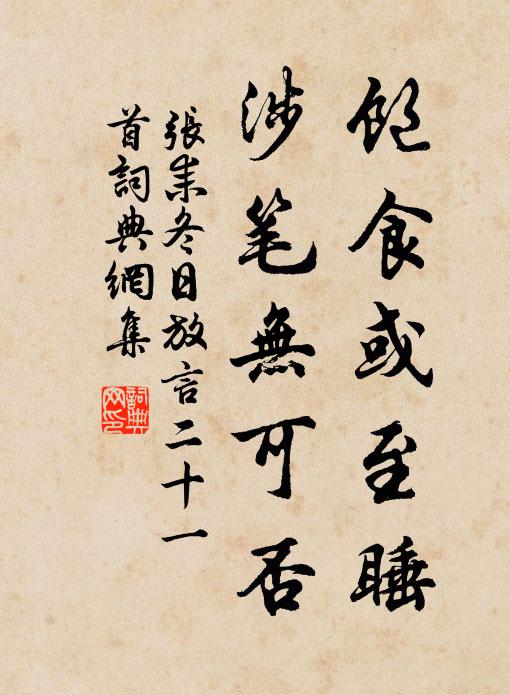 飽食或至睡
涉笔無可否
張耒冬日放言二十一
首詞典網集
詞典
网印